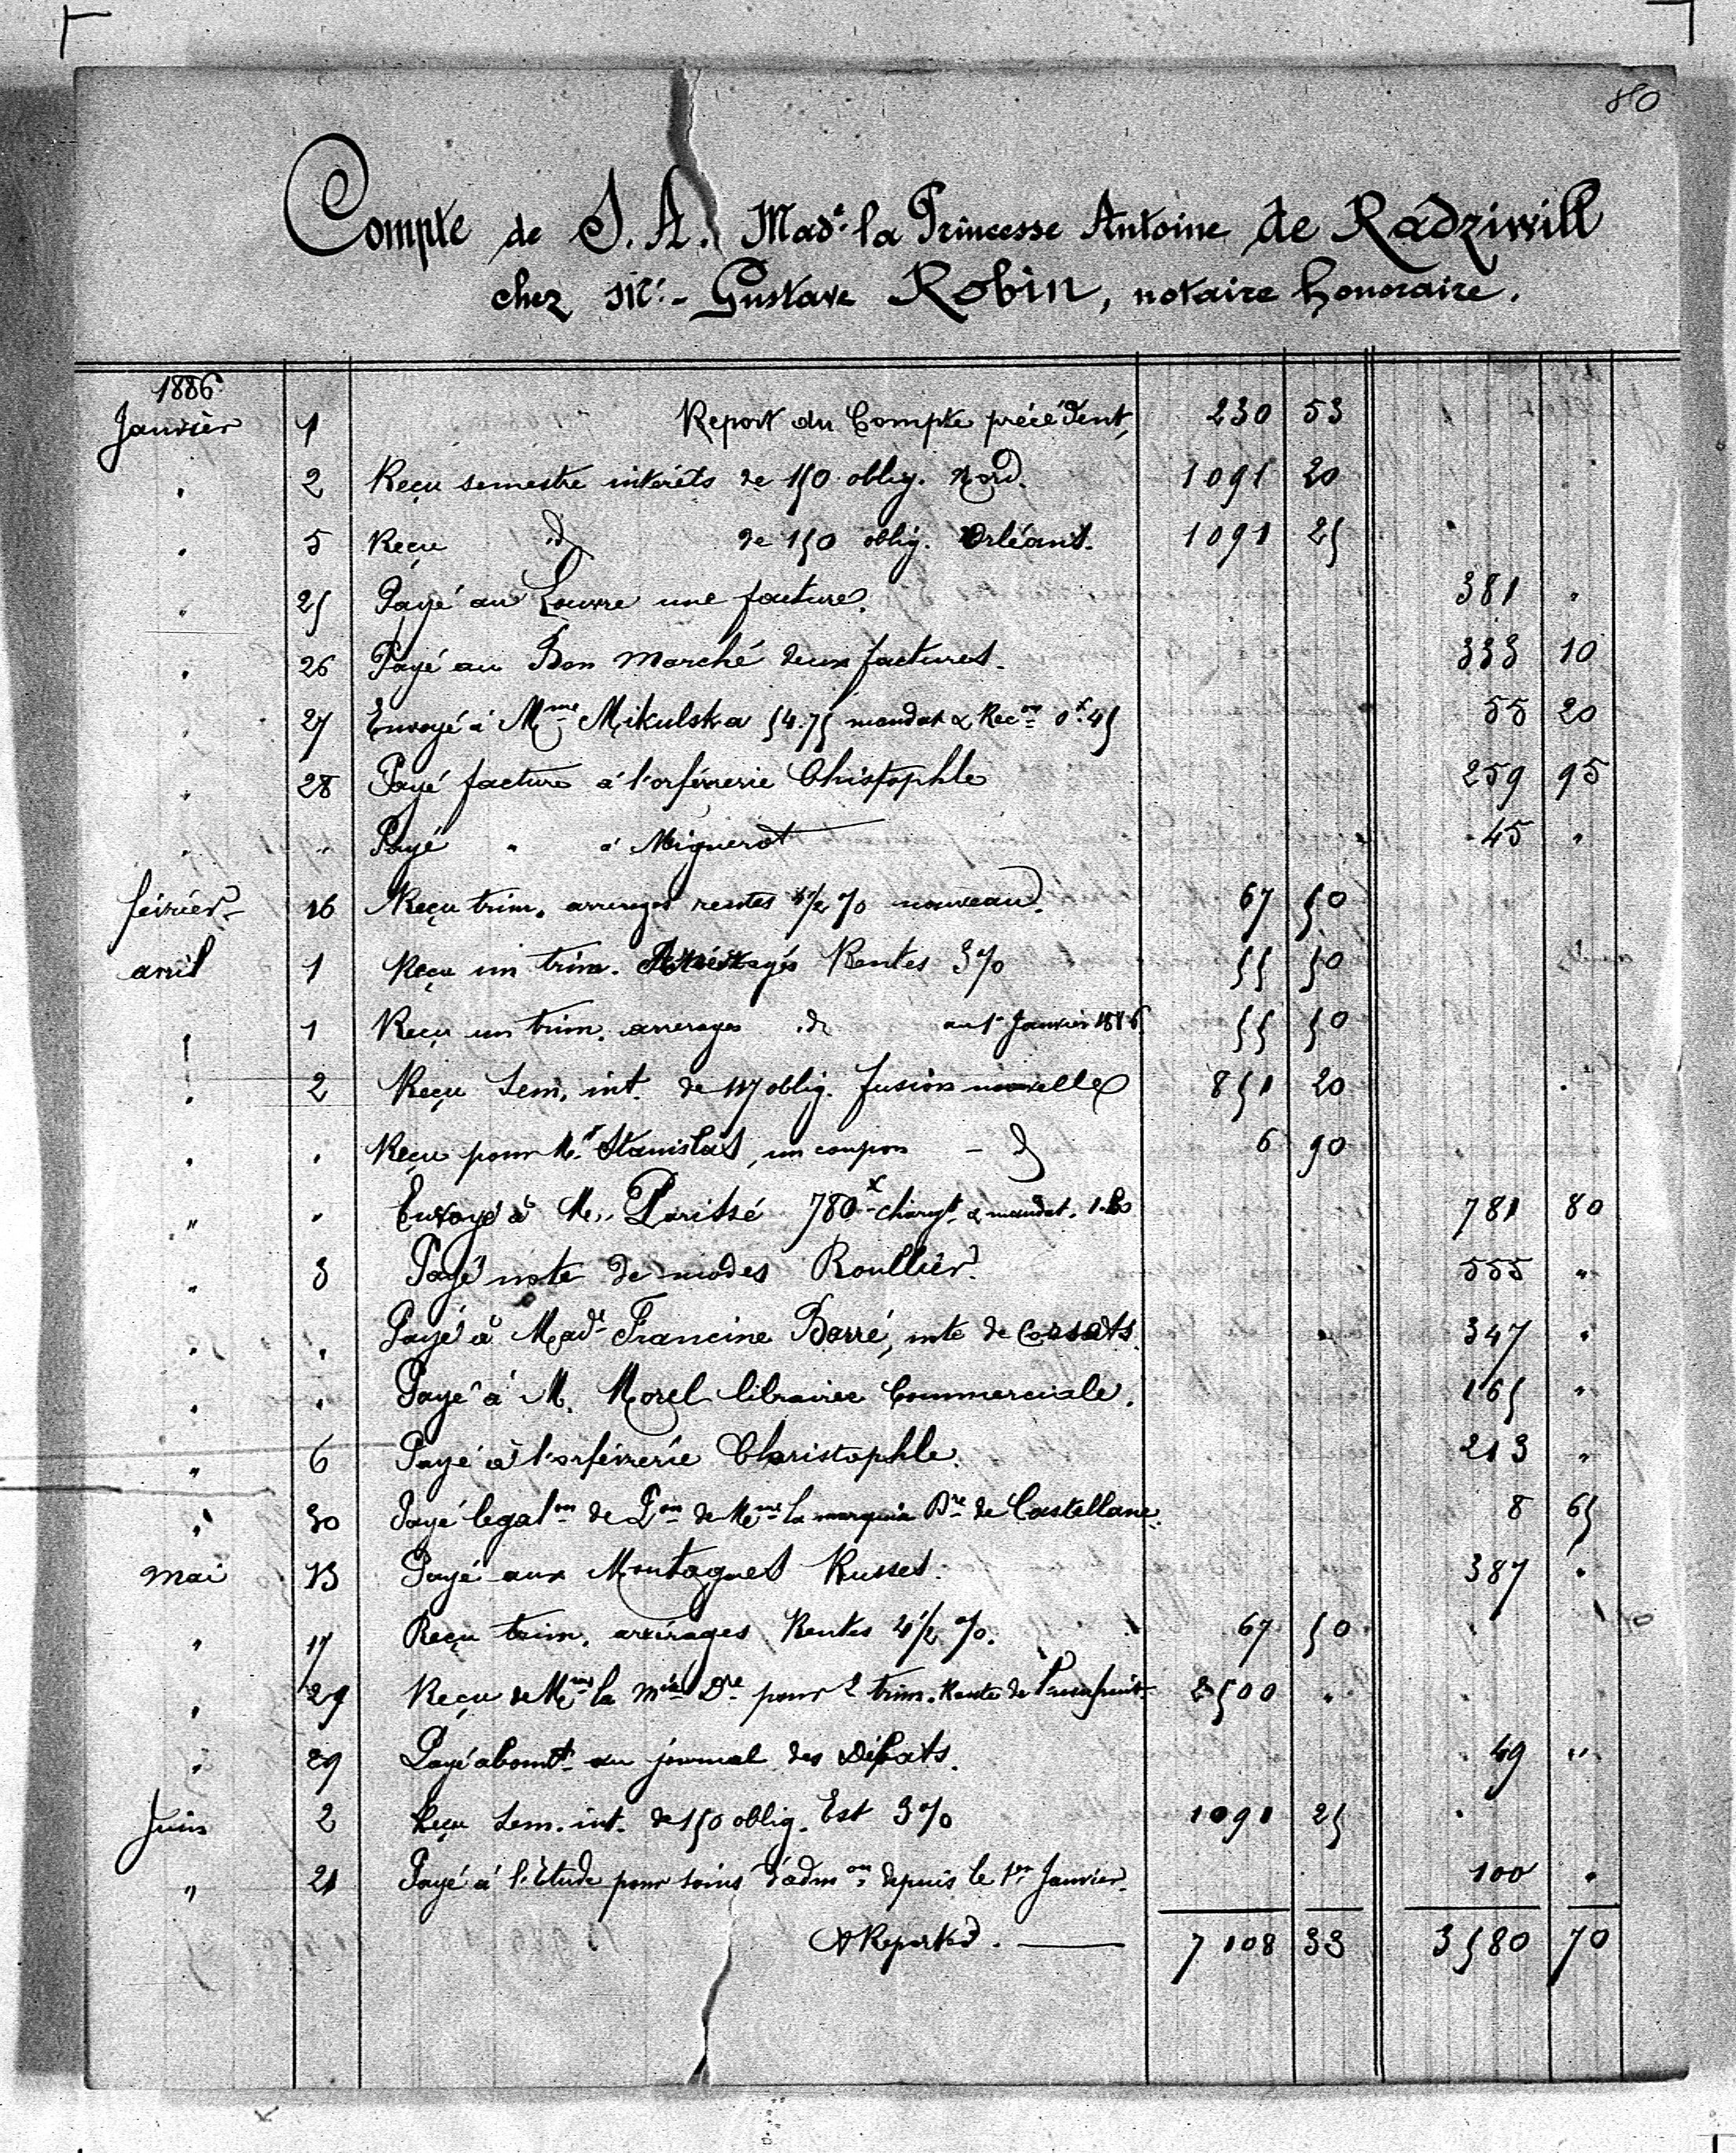 80
Compte de S. A. Made la Princesse Antoine de Radziwill
chez Me Gustave Robin, notaire honoraire.
1886
Janvier 1 Report du Compte précédent, 230 53
" 2 Reçu semestre intérêts de 150 oblig. Nord. 1091 20
" 5 Reçu id de 150 oblig. Orléans. 1091 25
" 25 Payé au Louvre une facture. 381 "
" 26 Payé au Bon Marché deux factures. 333 10
" 27 Envoyé à Mme Mikulska 54.75 mandat & Recon 0f.45 55 20
" 28 Payé facture à l'orfévrerie Christophle 259 95
" " Payé " à Mignerot 45 "
février 16 Reçu trim. arrerages rentes 4 1/2 % nouveau. 67 50
avril 1 Reçu un trim. Arrérages Rentes 3% 55 50
" 1 Reçu un trim. arrerages id au 1r Janvier 1886 55 50
" 2 Reçu Sem. int. de 117 oblig. fusion nouvelle 851 20
" " Reçu pour Mr Stanislas, un coupon - id 6 90
" " Envoyé à M. 780f chargt & mandat. 1.80 781 80
" 3 Payé note de modes Roullier. 555 "
" " Payé à Made Francine Barré, nte de Corsets. 347 "
" " Payé à M. Morel librairie Commerciale. 165 "
" 6 Payé à l'orfévrerie Christophle. 213 "
" 30 Payé legalon de Pon de Mme la marquise Dre de Castellane. 8 65
Mai 13 Payé aux Montagnes Russes. 387 "
" 17 Reçu trim. arrérages Rentes 4 1/2 %. 67 50
" 29 Reçu de Mme la Mise Dre pour 2 trim. Rente de 2500 "
" 29 Payé abomt au journal des Débats. 49 "
Juin 2 Reçu Sem. int. de 150 oblig. Est 3% 1091 25
" 21 Payé à l'Etude pour soins d'admon depuis le 1er Janvier. 100 "
A Reporter. 7108 33 3580 70